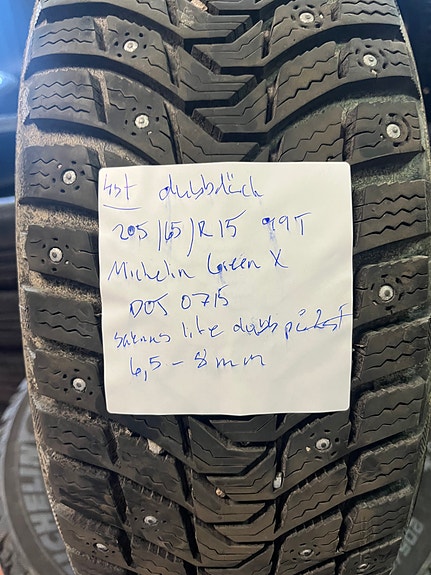 4st dubbdäck
205/65/R15 99T
Michelin Green X
DOT 0715
saknas lite dubb på 2st
6,5 - 8 mm
MICHELIN
205